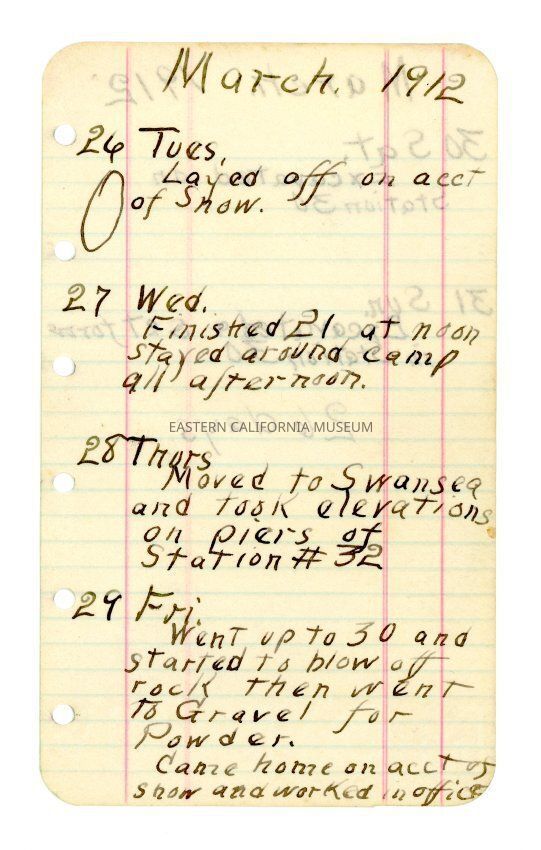 March. 1912
26 Tues,
Layed off on acct
0 of Snow.
27 Wed.
Finished 21 at noon
stayed around camp
all afternoon.
EASTERN CALIFORNIA MUSEUM
28 Thurs
Moved to Swansea
and took elevations
on piers of
Station # 32
29 Fri.
Went up to 30 and
started to blow off
rock then went
to Gravel for
Powder.
Came home on acct of
snow and worked in office